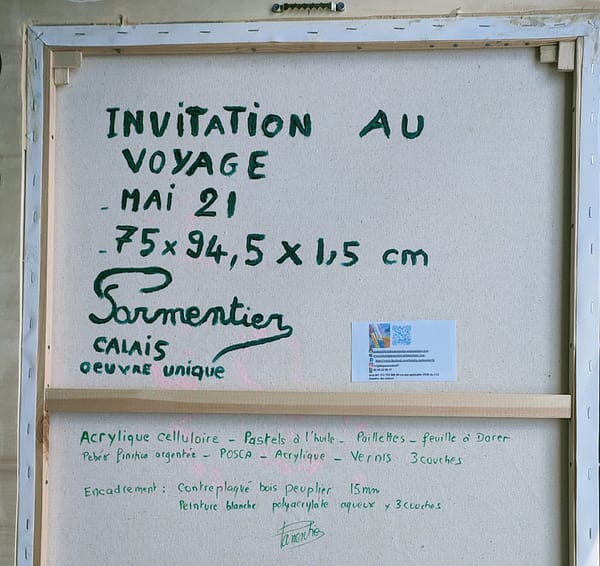 INVITATION AU
VOYAGE
- MAI 21
- 75 x 94,5 x 1,5 cm
Parmentier
CALAIS
OEUVRE unique
Acrylique celluloire - Pastels à l'huile - Paillettes - feuille à Dorer
Pebéo finition argentée - POSCA - Acrylique - Vernis 3 couches
Encadrement : Contreplaqué bois peuplier 15mm
Peinture blanche polyacrylate aqueux x 3 couches